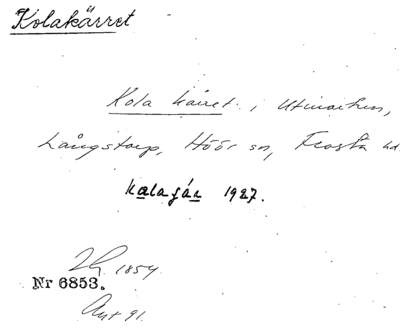 Kolakärret
Kola kärret i Utmarken,
Långstorp, Höör sn, Frosta hd
kalagár 1927.
1854
Nr 6853.
91.